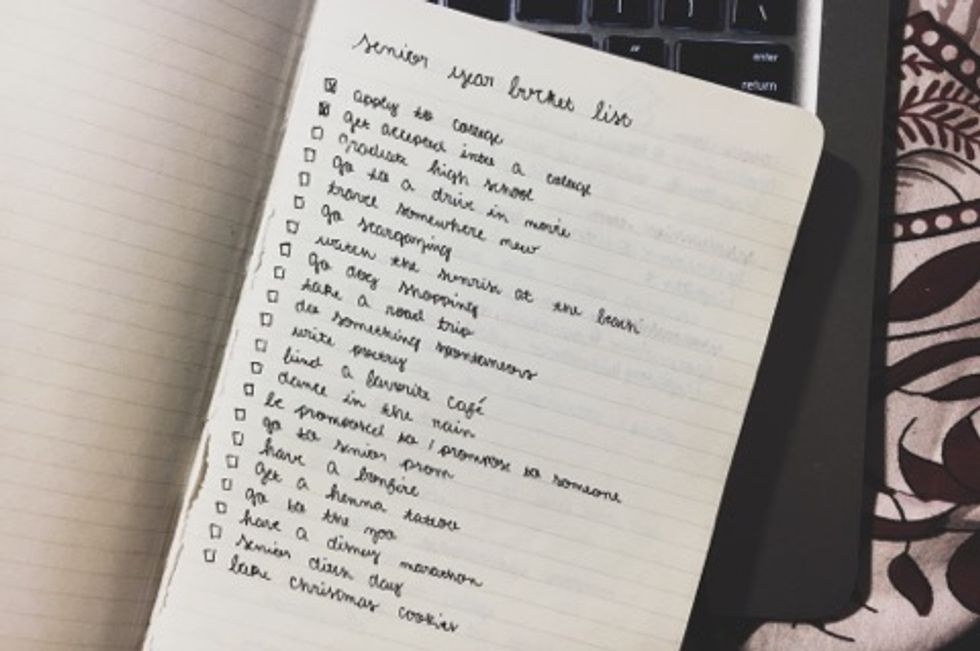 enter
return
senior year bucket list
apply to college
get accepted into a college
graduate high school
go to a drive in movie
travel somewhere new
go stargazing
watch the sunrise at the beach
go shopping
take a road trip
do something spontaneous
write poetry
find a favorite café
dance in the rain
be promposed to / prompose to someone
go to senior prom
have a bonfire
get a henna tattoo
go to the zoo
have a disney marathon
senior ditch day
bake christmas cookies